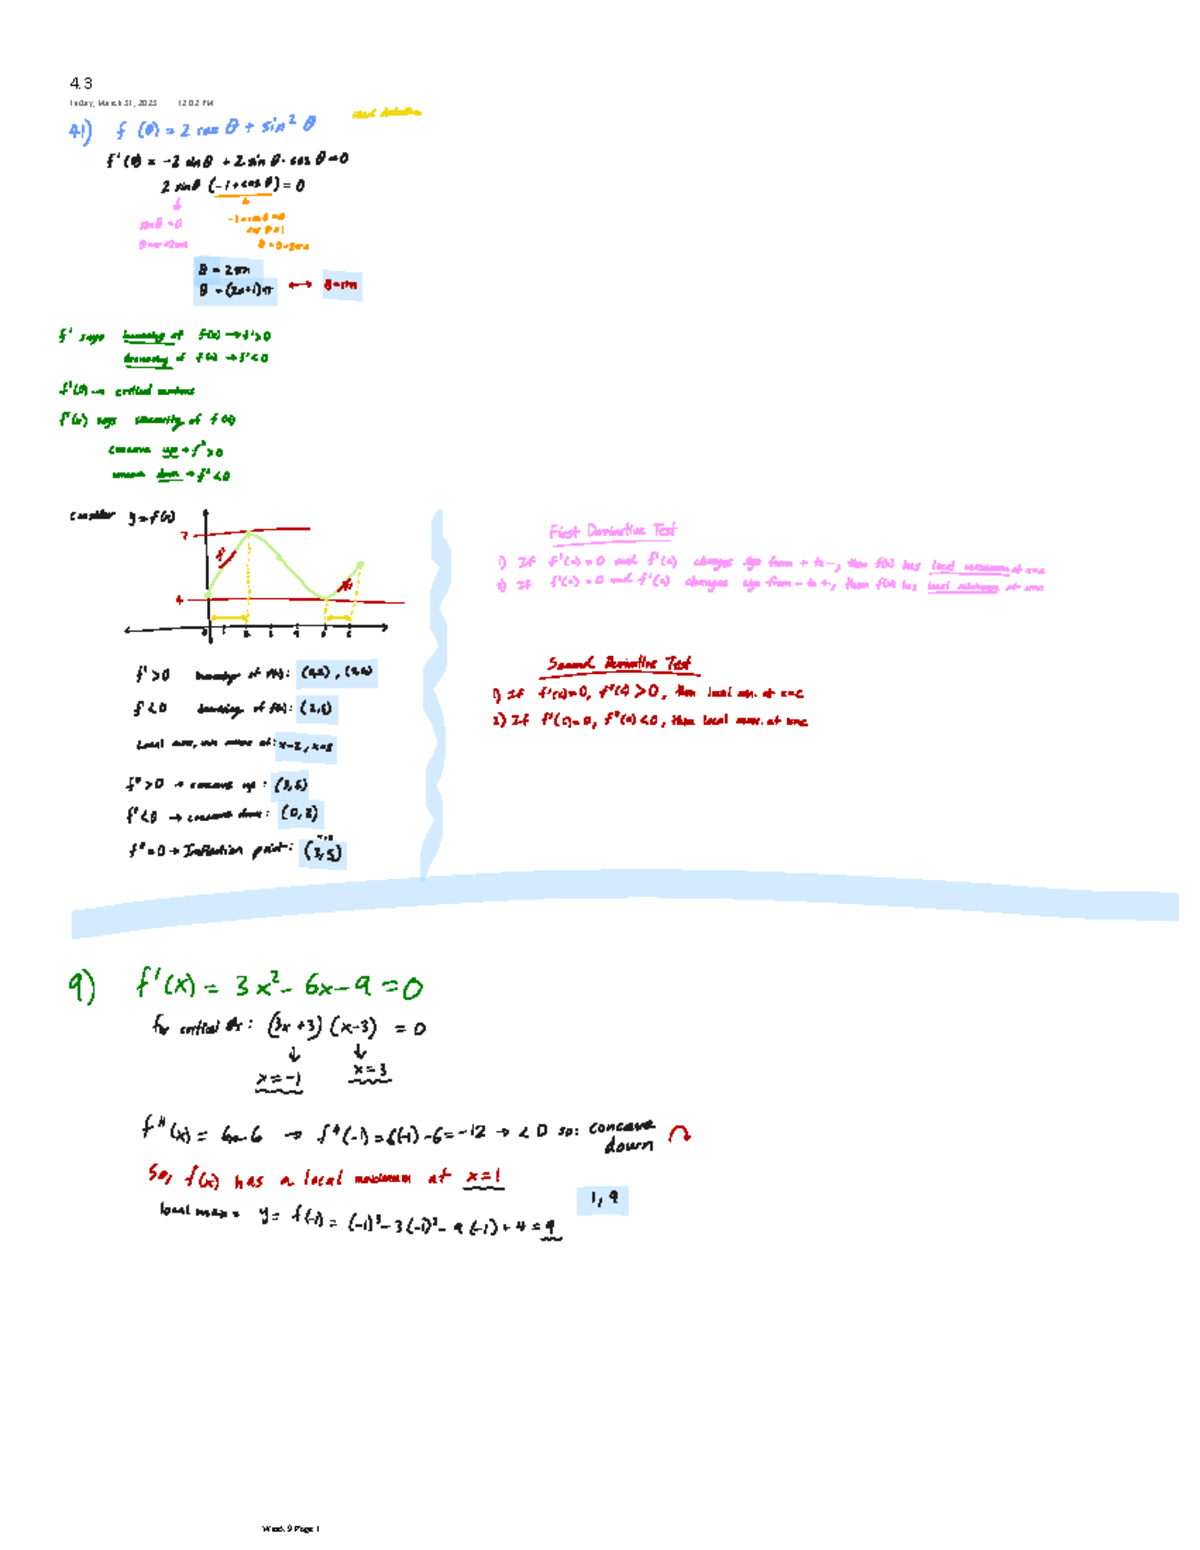 4.3
Today, March 31, 2025 12:02 PM
41) f (θ) = 2 cos θ + sin² θ
f'(θ) = -2 sin θ + 2 sin θ · cos θ = 0
2 sin θ (-1 + cos θ) = 0
sin θ = 0
-1 + cos θ = 0
cos θ = 1
θ = 2πn
θ = (2n+1)π ↔ θ = πn
f' says increasing of f(x) → f' > 0
decreasing of f(x) → f' < 0
critical numbers
says concavity of f(x)
concave up → f" > 0
concave down → f" < 0
Consider y = f(x)
7
4
0 1 2 3 4 5 6
f' > 0 increasing of f(x):
f' < 0 decreasing of f(x):
Local max, min
x = 2, x = 5
f" > 0 → concave up : (3, 6)
f" < 0 → concave down : (0, 3)
f" = 0 → Inflection point: (3, 5)
First Derivative Test
1) If f'(c) = 0 and f'(x) changes sign from + to -, then f(x) has local maximum at x=c
2) If f'(c) = 0 and f'(x) changes sign from - to +, then f(x) has local minimum at x=c
Second Derivative Test
1) If f'(c) = 0, f"(c) > 0, then local min. at x=c
2) If f'(c) = 0, f"(c) < 0, then local max. at x=c
9) f'(x) = 3x² - 6x - 9 = 0
for critical #s: (3x + 3) (x - 3) = 0
x = -1 x = 3
f"(x) = 6x - 6 → f"(-1) = 6(-1) - 6 = -12 → < 0 so: concave
down
So, f(x) has a local maximum at x = 1
1, 9
local max = y = f(-1) = (-1)³ - 3(-1)² - 9(-1) + 4 = 9
Week 9 Page 1